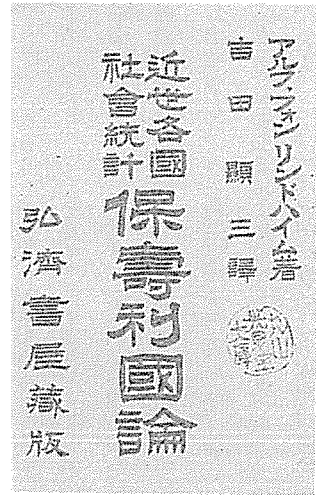 アルフ、フォンリンドハイム著
吉田顯三譯
近世各國
社會統計
保壽利國論
弘濟書屋藏版